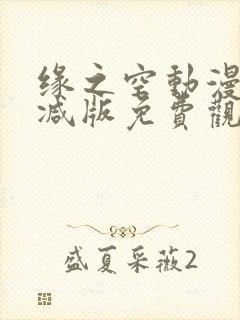 缘之空動漫
减版免費觀
盛夏采薇2